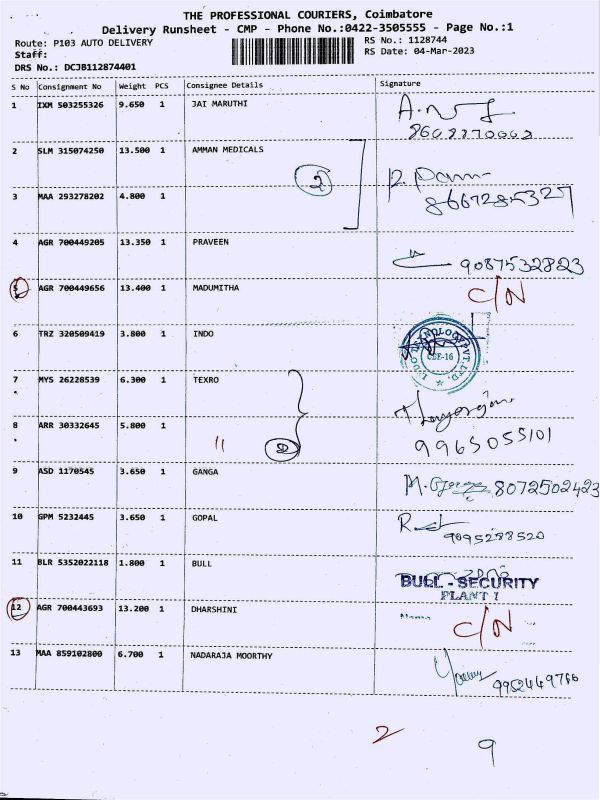 THE PROFESSIONAL COURIERS, Coimbatore
Delivery Runsheet - CMP - Phone No.:0422-3505555 - Page No.:1
Route: P103 AUTO DELIVERY RS No.: 1128744
Staff: RS Date: 04-Mar-2023
DRS No.: DCJB112874401
S No Consignment No Weight PCS Consignee Details Signature
1 IXM 503255326 9.650 1 JAI MARUTHI
2 SLM 315074250 13.500 1 AMMAN MEDICALS
2
8667285327
3 MAA 293278202 4.800 1
4 AGR 700449205 13.350 1 PRAVEEN 9087532823
5 AGR 700449656 13.400 1 MADUMITHA C/N
6 TRZ 320509419 3.800 1 INDO
CBE-16
7 MYS 26228539 6.300 1 TEXRO
8 ARR 30332645 5.800 1
11 2 9965055101
9 ASD 1170545 3.650 1 GANGA 8072502423
10 GPM 5232445 3.650 1 GOPAL
9095288520
11 BLR 5352022118 1.800 1 BULL
BULL - SECURITY
PLANT 1
12 AGR 700443693 13.200 1 DHARSHINI C/N
13 MAA 859102800 6.700 1 NADARAJA MOORTHY
9952449766
2 9